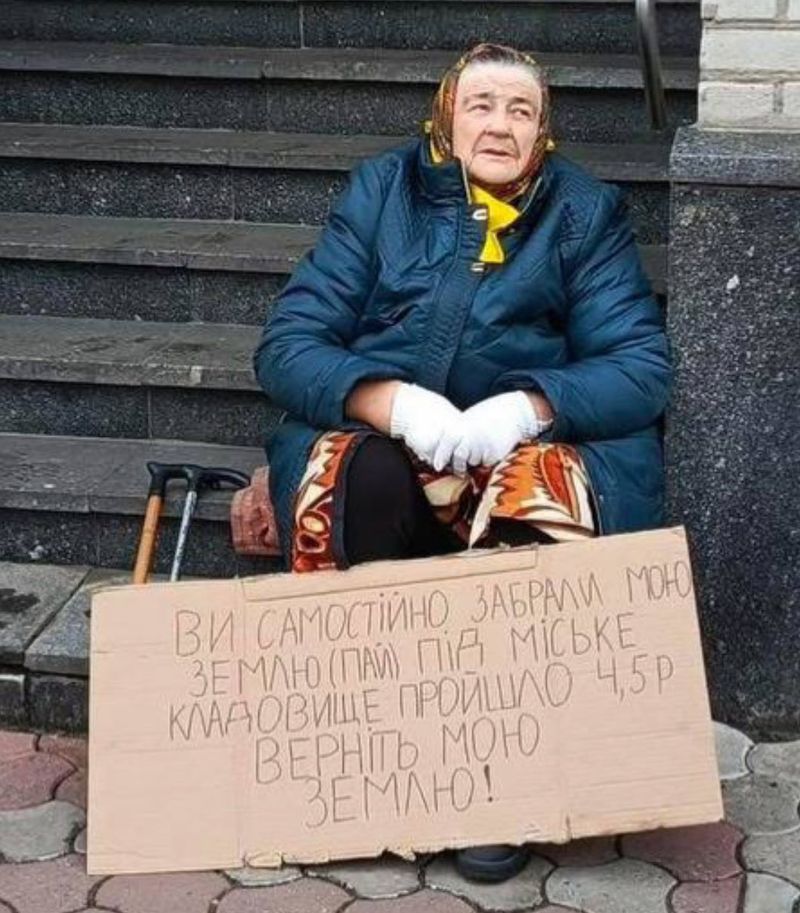 ВИ САМОСТІЙНО ЗАБРАЛИ МОЮ
ЗЕМЛЮ (ПАЙ) ПІД МІСЬКЕ
КЛАДОВИЩЕ ПРОЙШЛО 4,5 Р
ВЕРНІТЬ МОЮ
ЗЕМЛЮ!